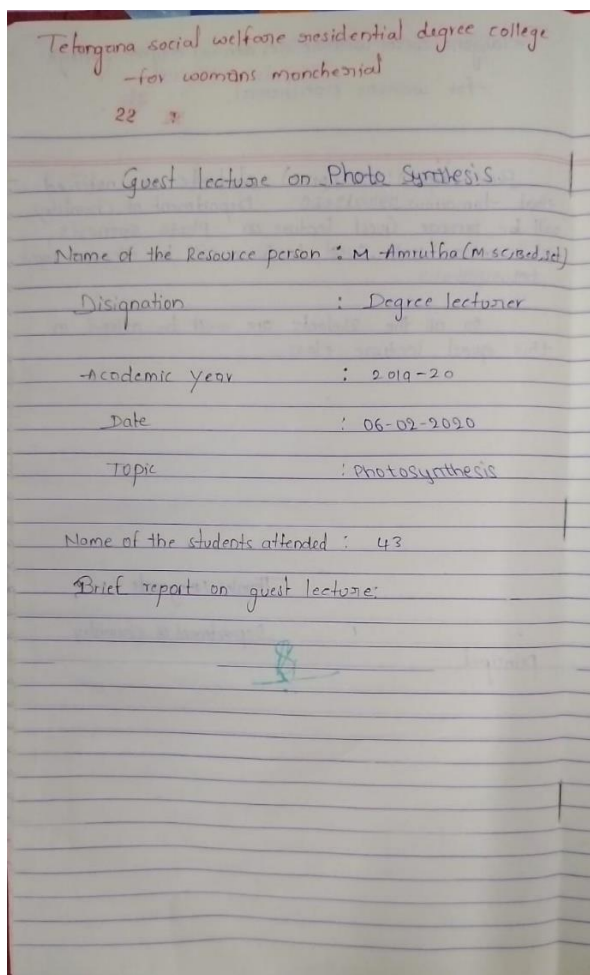 Telangana social welfare residential degree college
-for womans moncherial
22
Guest lecture on Photo Synthesis
Name of the Resource person : M-Amrutha (M sc, Bed, set)
Disignation : Degree lecturer
Academic year : 2019-20
Date : 06-02-2020
Topic : Photosynthesis
Name of the students attended : 43
Brief report on guest lecture: